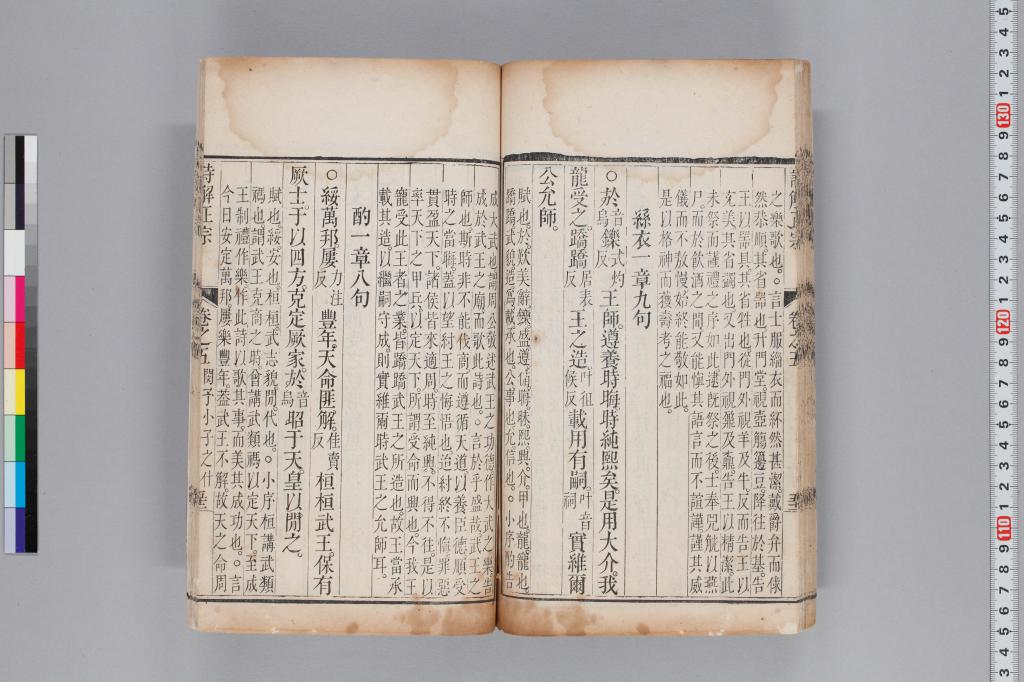 之樂歌也。○言士服緇衣而紑然甚潔戴爵弁而俅
然恭順其省器也升門堂視壺籩豆降往於基告
王以器具其省牲也從門外視羊及牛反而告王以
充其省鑊也又出門外視鼐及鼒告王以精潔此
未祭而謹禮之序如此逮既祭之後士奉兕觥以燕
尸而於飲酒之間又能慎其語言而不諠譁謹其威
儀而不敖慢始終能敬如此
是以格神而獲壽考之福也
絲衣一章九句
○於音烏鑠式灼反王師遵養時晦時純熙矣是用大介我
龍受之蹻蹻居表反王之造叶徂候反載用有嗣叶音祠實維爾
公允師
賦也於歎美辭鑠盛遵循晦昧熙興介甲也龍寵也
蹻蹻武貌造為載承也公事也允信也○小序酌告
成大武也謂周公敘述武王之功德作大武之樂告
成於武王之廟而歌此詩也○言於乎盛哉武王之
師也斯時非不能伐商而遵循天道以養臣德順受
時之當晦蓋以望紂王之悔悟也迨紂終不悔罪惡
貫盈天下諸侯皆來適周時至純興不得不往是以
率天下之甲兵以定天下所謂受命而興也今我王
寵受此王者之業皆蹻蹻武王之所造也故王當承
載其造以繼嗣守成則實維爾時武王之允師耳
酌一章八句
○綏萬邦屢力注反豐年天命匪解佳賣反桓桓武王保有
厥士于以四方克定厥家於音烏昭于天皇以閒之
賦也綏安也桓桓武志貌閒代也○小序桓講武類
禡也謂武王克商之時曾講武類禡以定天下至成
王制禮作樂作此詩以歌其事而美其成功也○言
今日安定萬邦屢樂豐年蓋武王不解故天之命周
詩解正宗
卷之五
閔子小子之什